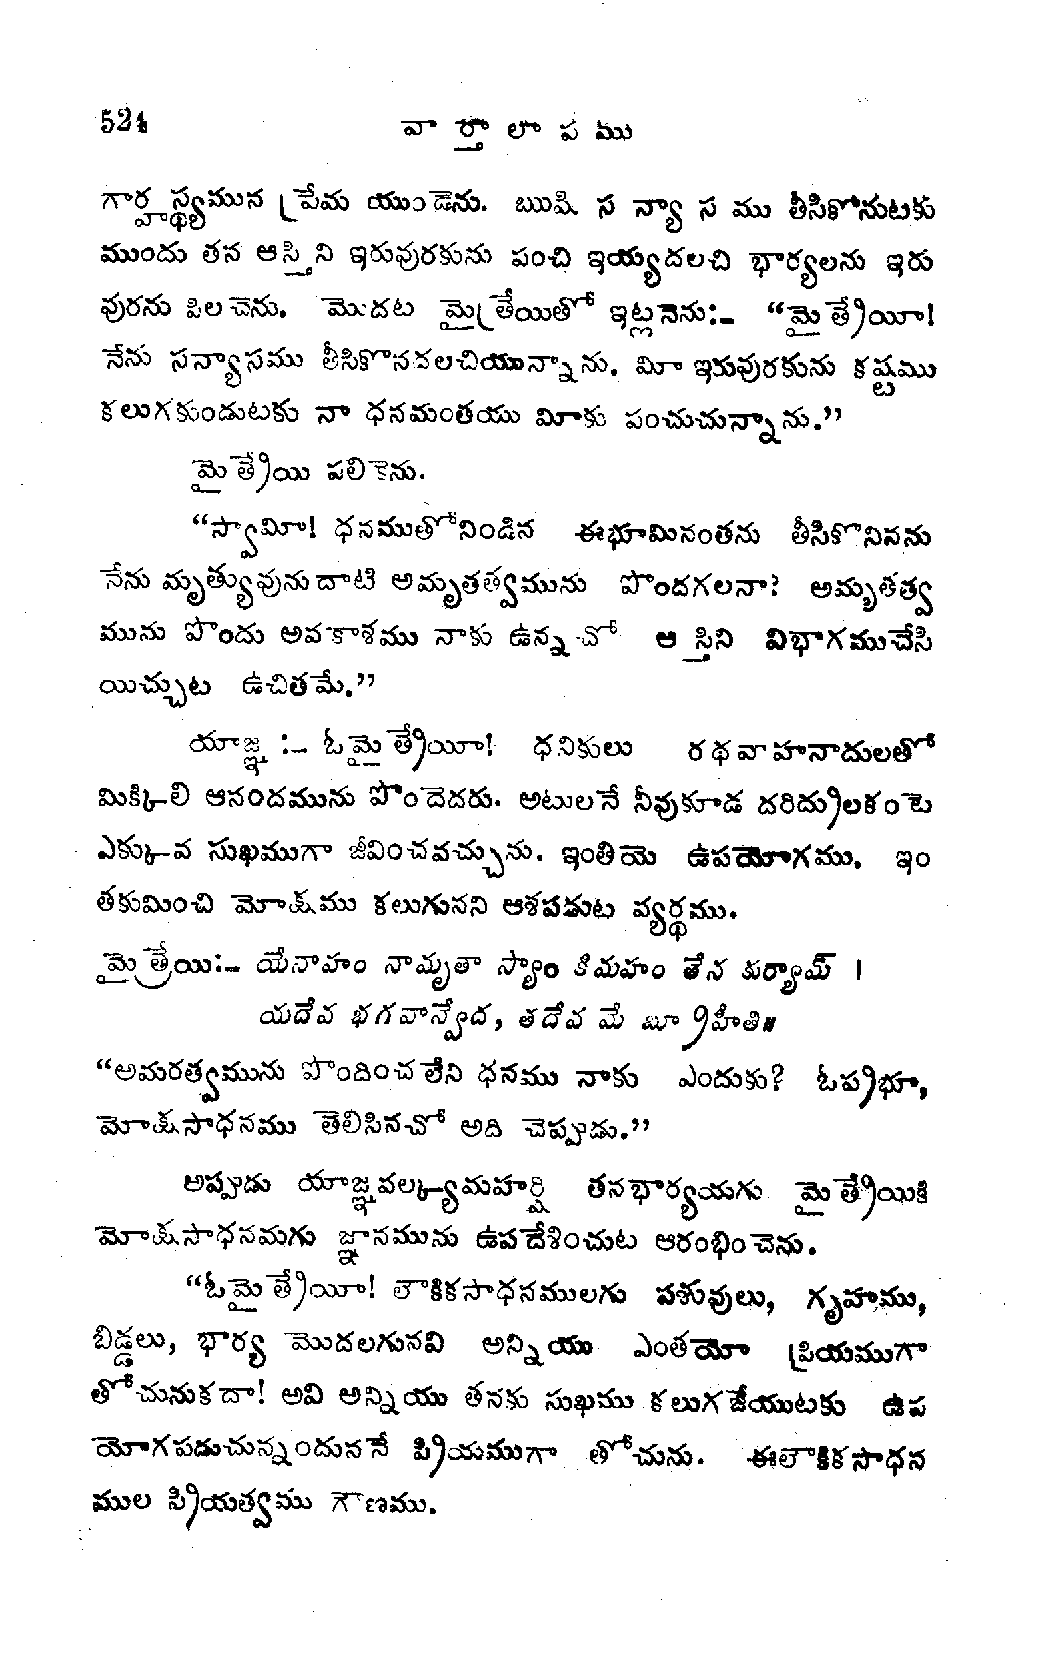 524 వార్తాలాపము
గార్హస్థ్యమున ప్రేమ యుండెను. ఋషి సన్యాసము తీసికోనుటకు
ముందు తన ఆస్తిని ఇరువురకును పంచి ఇయ్యదలచి భార్యలను ఇరు
వురను పిలచెను. మొదట మైత్రేయితో ఇట్లనెను:– “మైత్రేయీ!
నేను సన్యాసము తీసికొనదలచియున్నాను. మీ ఇరువురకును కష్టము
కలుగకుండుటకు నా ధనమంతయు మీకు పంచుచున్నాను.”
మైత్రేయి పలికెను.
“స్వామీ! ధనముతోనిండిన ఈభూమినంతను తీసికొనినను
నేను మృత్యువునుదాటి అమృతత్వమును పొందగలనా? అమృతత్వ
మును పొందు అవకాశము నాకు ఉన్నచో ఆస్తిని విభాగముచేసి
యిచ్చుట ఉచితమే.”
యాజ్ఞ :– ఓమైత్రేయీ! ధనికులు రథవాహనాదులతో
మిక్కిలి ఆనందమును పొందెదరు. అటులనే నీవుకూడ దరిద్రులకంటె
ఎక్కువ సుఖముగా జీవించవచ్చును. ఇంతియె ఉపయోగము. ఇం
తకుమించి మోక్షము కలుగునని ఆశపడుట వ్యర్థము.
మైత్రేయి:– యేనాహం నామృతా స్యాం కిమహం తేన కుర్యామ్ ।
యదేవ భగవాన్వేద, తదేవ మే బ్రూహీతి॥
“అమరత్వమును పొందించలేని ధనము నాకు ఎందుకు? ఓప్రభూ,
మోక్షసాధనము తెలిసినచో అది చెప్పుడు.”
అప్పుడు యాజ్ఞవల్క్యమహర్షి తనభార్యయగు మైత్రేయికి
మోక్షసాధనమగు జ్ఞానమును ఉపదేశించుట ఆరంభించెను.
“ఓమైత్రేయీ! లౌకికసాధనములగు పశువులు, గృహము,
బిడ్డలు, భార్య మొదలగునవి అన్నియు ఎంతయో ప్రియముగా
తోచునుకదా! అవి అన్నియు తనకు సుఖము కలుగజేయుటకు ఉప
యోగపడుచున్నందుననే ప్రియముగా తోచును. ఈలౌకికసాధన
ముల ప్రియత్వము గౌణము.